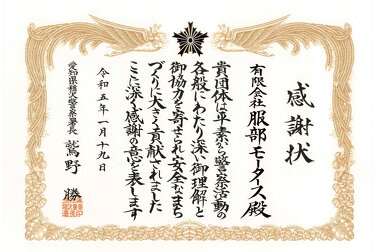 感謝状
有限会社 服部モータース 殿
貴団体は平素から警察活動の
各般にわたり深い御理解と
御協力を寄せられ安全なまち
づくりに大きく貢献されました
ここに深く感謝の意を表します
令和五年一月十九日
愛知県稲沢警察署長 鷲野 勝